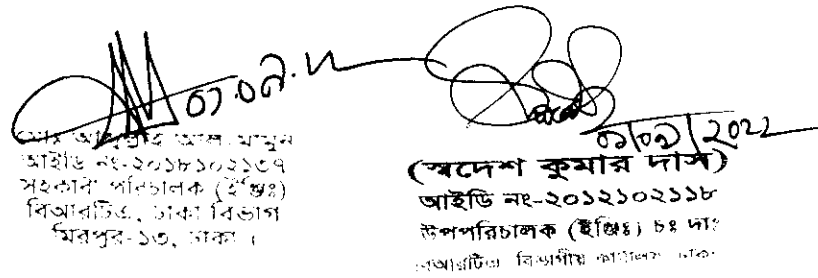 ০১.০৯.২২
মোঃ আব্দুল্লাহ আল মামুন
আইডি নং-২০১৮১০২১৩৭
সহকারী পরিচালক (ইঞ্জিঃ)
বিআরটিএ, ঢাকা বিভাগ
মিরপুর-১৩, ঢাকা ।
০১/০৯/2022
(স্বদেশ কুমার দাস)
আইডি নং-২০১২১০২১১৮
উপপরিচালক (ইঞ্জিঃ) চঃ দাঃ
বিআরটিএ বিভাগীয় কার্যালয় ঢাকা